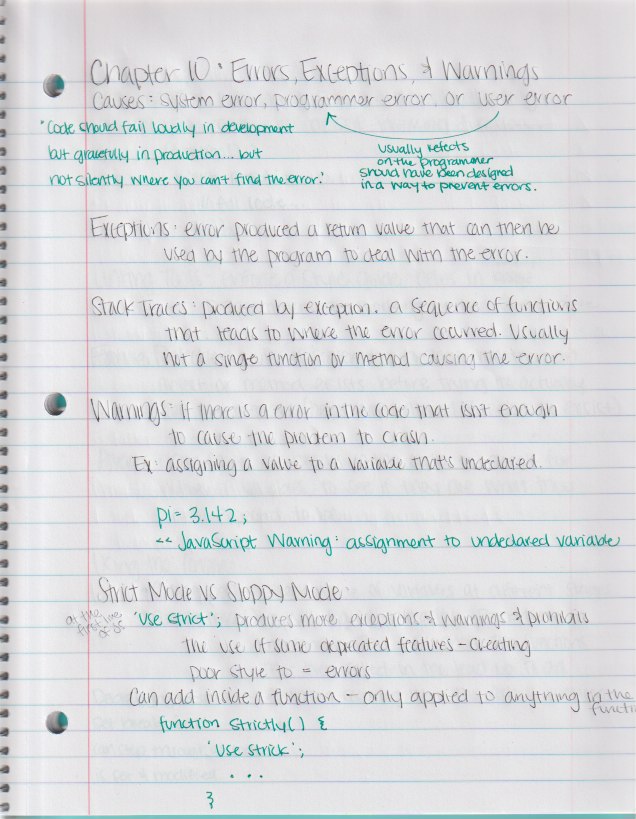 Chapter 10: Errors, Exceptions, & Warnings
Causes: system error, programmer error, or user error
"Code should fail loudly in development
but gracefully in production... but
not silently where you cant find the error."
usually reflects
on the programmer
should have been designed
in a way to prevent errors.
Exceptions: error produced a return value that can then be
used by the program to deal with the error.
Stack Traces: produced by exception. a sequence of functions
that leads to where the error occurred. Usually
not a single function or method causing the error.
Warnings: if there is a error in the code that isn't enough
to cause the problem to crash.
Ex: assigning a value to a variable that's undeclared.
pi = 3.142;
<< JavaScript Warning: assignment to undeclared variable
Strict Mode vs Sloppy Mode:
at the
first line
of JS
'use strict'; produces more exceptions & warnings & prohibits
the use of some depricated features - Creating
poor style to = errors
Can add inside a function - only applied to anything in the
function
function strictly() {
'use strick';
...
}